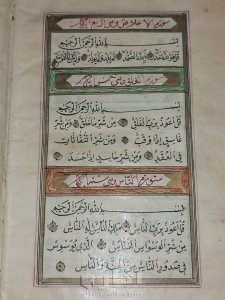 سورة الاخلاص وهي اربع
بِسْمِ اللهِ الرَّحْمٰنِ الرَّحِيمِ
قُلْ هُوَ اللهُ اَحَدٌ اللهُ الصَّمَدُ لَمْ يَلِدْ وَلَمْ يُولَدْ وَلَمْ يَكُنْ لَهُ
سورة الفلق وهي خمس
بِسْمِ اللهِ الرَّحْمٰنِ الرَّحِيمِ
قُلْ اَعُوذُ بِرَبِّ الْفَلَقِ مِنْ شَرِّ مَا خَلَقَ وَمِنْ شَرِّ
غَاسِقٍ اِذَا وَقَبَ وَمِنْ شَرِّ النَّفَّاثَاتِ
فِي الْعُقَدِ وَمِنْ شَرِّ حَاسِدٍ اِذَا حَسَدَ
سورة الناس وهي ست
بِسْمِ اللهِ الرَّحْمٰنِ الرَّحِيمِ
قُلْ اَعُوذُ بِرَبِّ النَّاسِ مَلِكِ النَّاسِ اِلٰهِ النَّاسِ
مِنْ شَرِّ الْوَسْوَاسِ الْخَنَّاسِ الَّذِي يُوَسْوِسُ
فِي صُدُورِ النَّاسِ مِنَ الْجِنَّةِ وَالنَّاسِ